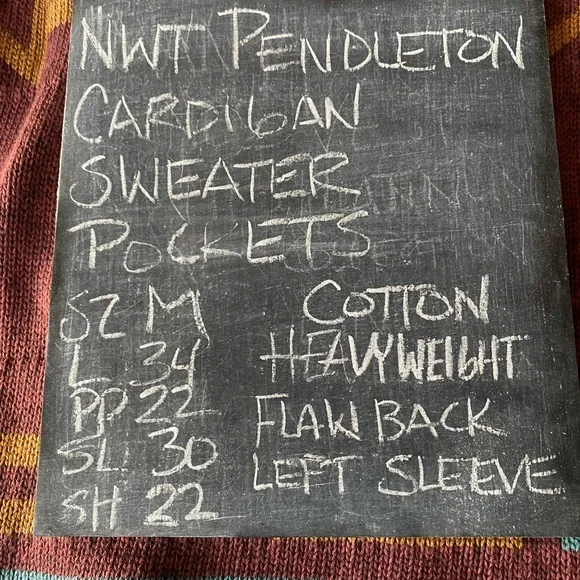 NWT PENDLETON
CARDIGAN
SWEATER
POCKETS
SZ M
L 34
PP 22
SL 30
SH 22
COTTON
HEAVYWEIGHT
FLAW BACK
LEFT SLEEVE